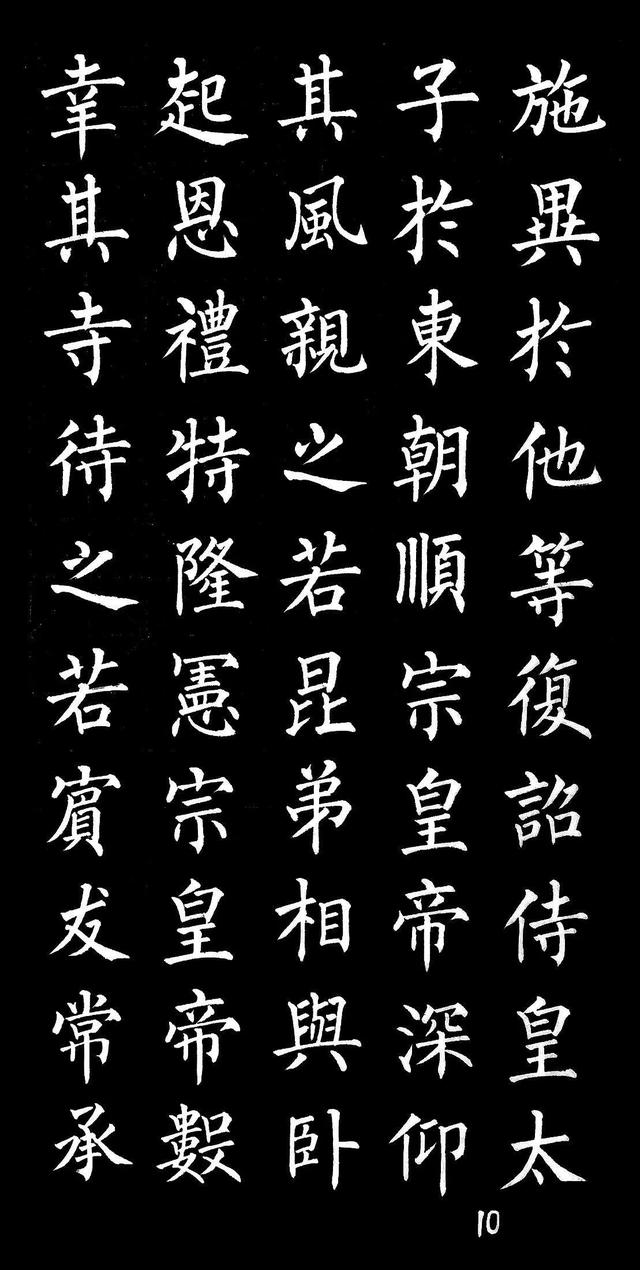 施異於他等復詔侍皇太
子於東朝順宗皇帝深仰
其風親之若昆弟相與卧
起恩禮特隆憲宗皇帝數
幸其寺待之若賓友常承
10